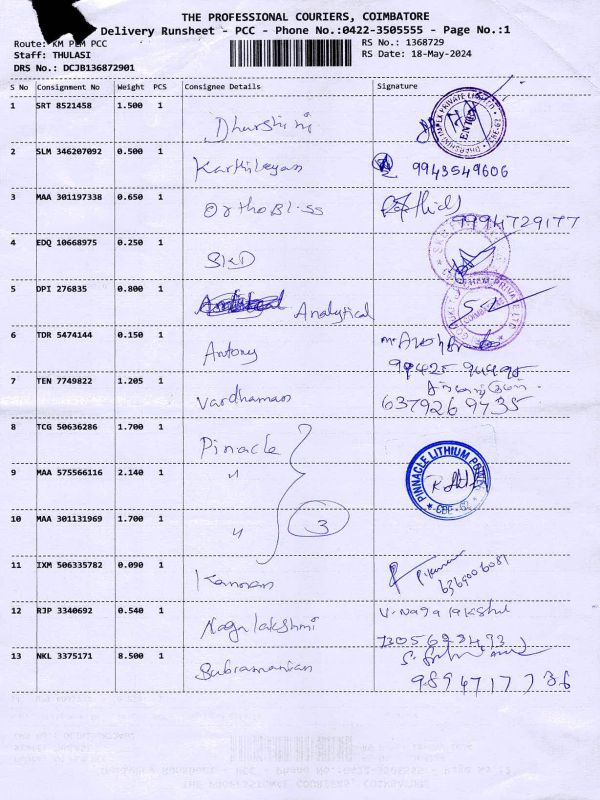 THE PROFESSIONAL COURIERS, COIMBATORE
Delivery Runsheet - PCC - Phone No.:0422-3505555 - Page No.:1
Route: KM PLM PCC
RS No.: 1368729
Staff: THULASI
RS Date: 18-May-2024
DRS No.: DCJB136872901
S No Consignment No Weight PCS Consignee Details Signature
1 SRT 8521458 1.500 1 Dharshini
2 SLM 346207092 0.500 1 Karthikeyan 9943549606
3 MAA 301197338 0.650 1 OrthoBliss 9994729177
4 EDQ 10668975 0.250 1 SKD
5 DPI 276835 0.800 1 Analytical
6 TDR 5474144 0.150 1 Antony
7 TEN 7749822 1.205 1 Vardhaman 6379269735
8 TCG 50636286 1.700 1 Pinacle
PINNACLE LITHIUM CBE-62
9 MAA 575566116 2.140 1 "
10 MAA 301131969 1.700 1 " 3
11 IXM 506335782 0.090 1 Kannan
12 RJP 3340692 0.540 1 Nagalakshmi V. Nagalakshmi
13 NKL 3375171 8.500 1 Subramanian
9894717736